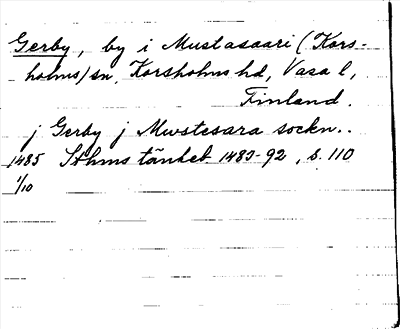 Gerby, by i Mustasaari (Kors-
holms) sn, Korsholms hd, Vasa l,
Finland.
j Gerby j Mwstesara sockn..
1485 Sthms tänkeb 1483-92, s. 110
1/10